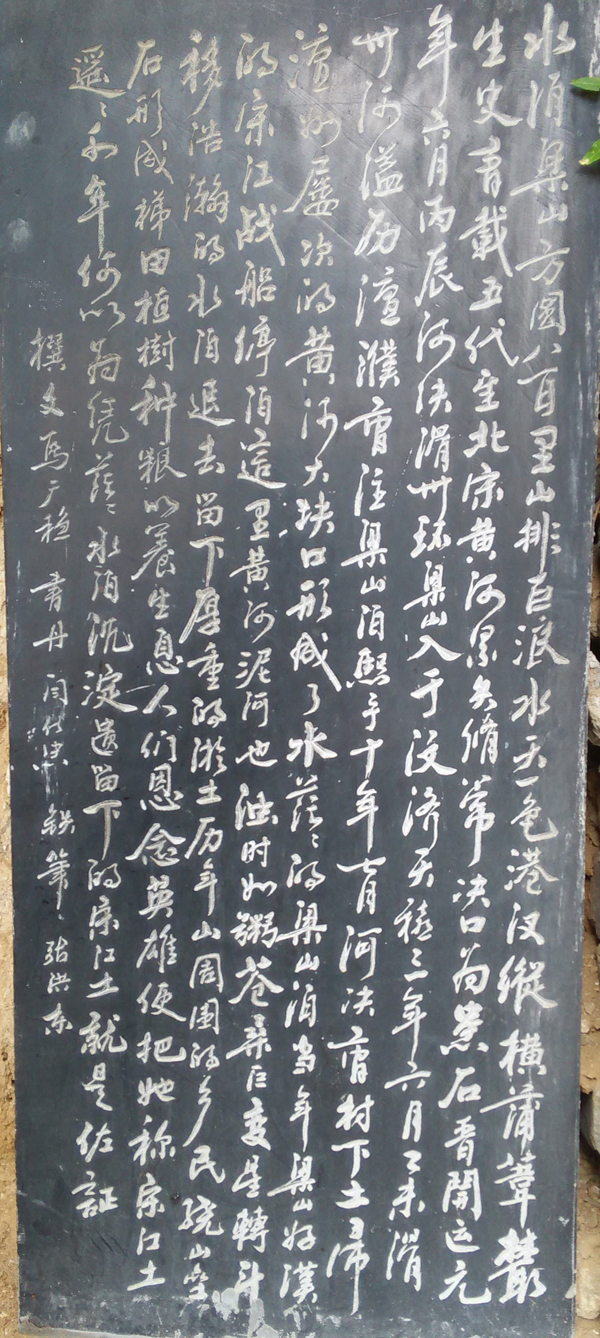 水泊梁山方圆八百里山排巨浪水天一色港汊縱横蒲葦叢
生史書載五代至北宋黄河累欠脩常决口为患石晋開运元
年六月丙辰河决滑州环梁山入于汶济天禧三年六月乙未滑
州河溢历澶濮曹注梁山泊熙宁十年七月河决曹村下土帚
澶州屡次的黄河大决口形成了水茫〻的梁山泊当年梁山好漢
的宋江战船停泊這里黄河泥河也浊时如粥苍桒巨变星轉斗
移浩瀚的水泊退去留下厚重的淤土历年山周围的乡民绕山垒
石形成梯田植樹种粮以養生息人们恩念英雄便把她称宋江土
遥〻千年何以为凭茫〻水泊沉淀遗留下的宋江土就是佐証
撰文馬广稳 書丹闫 铁筆 張洪东